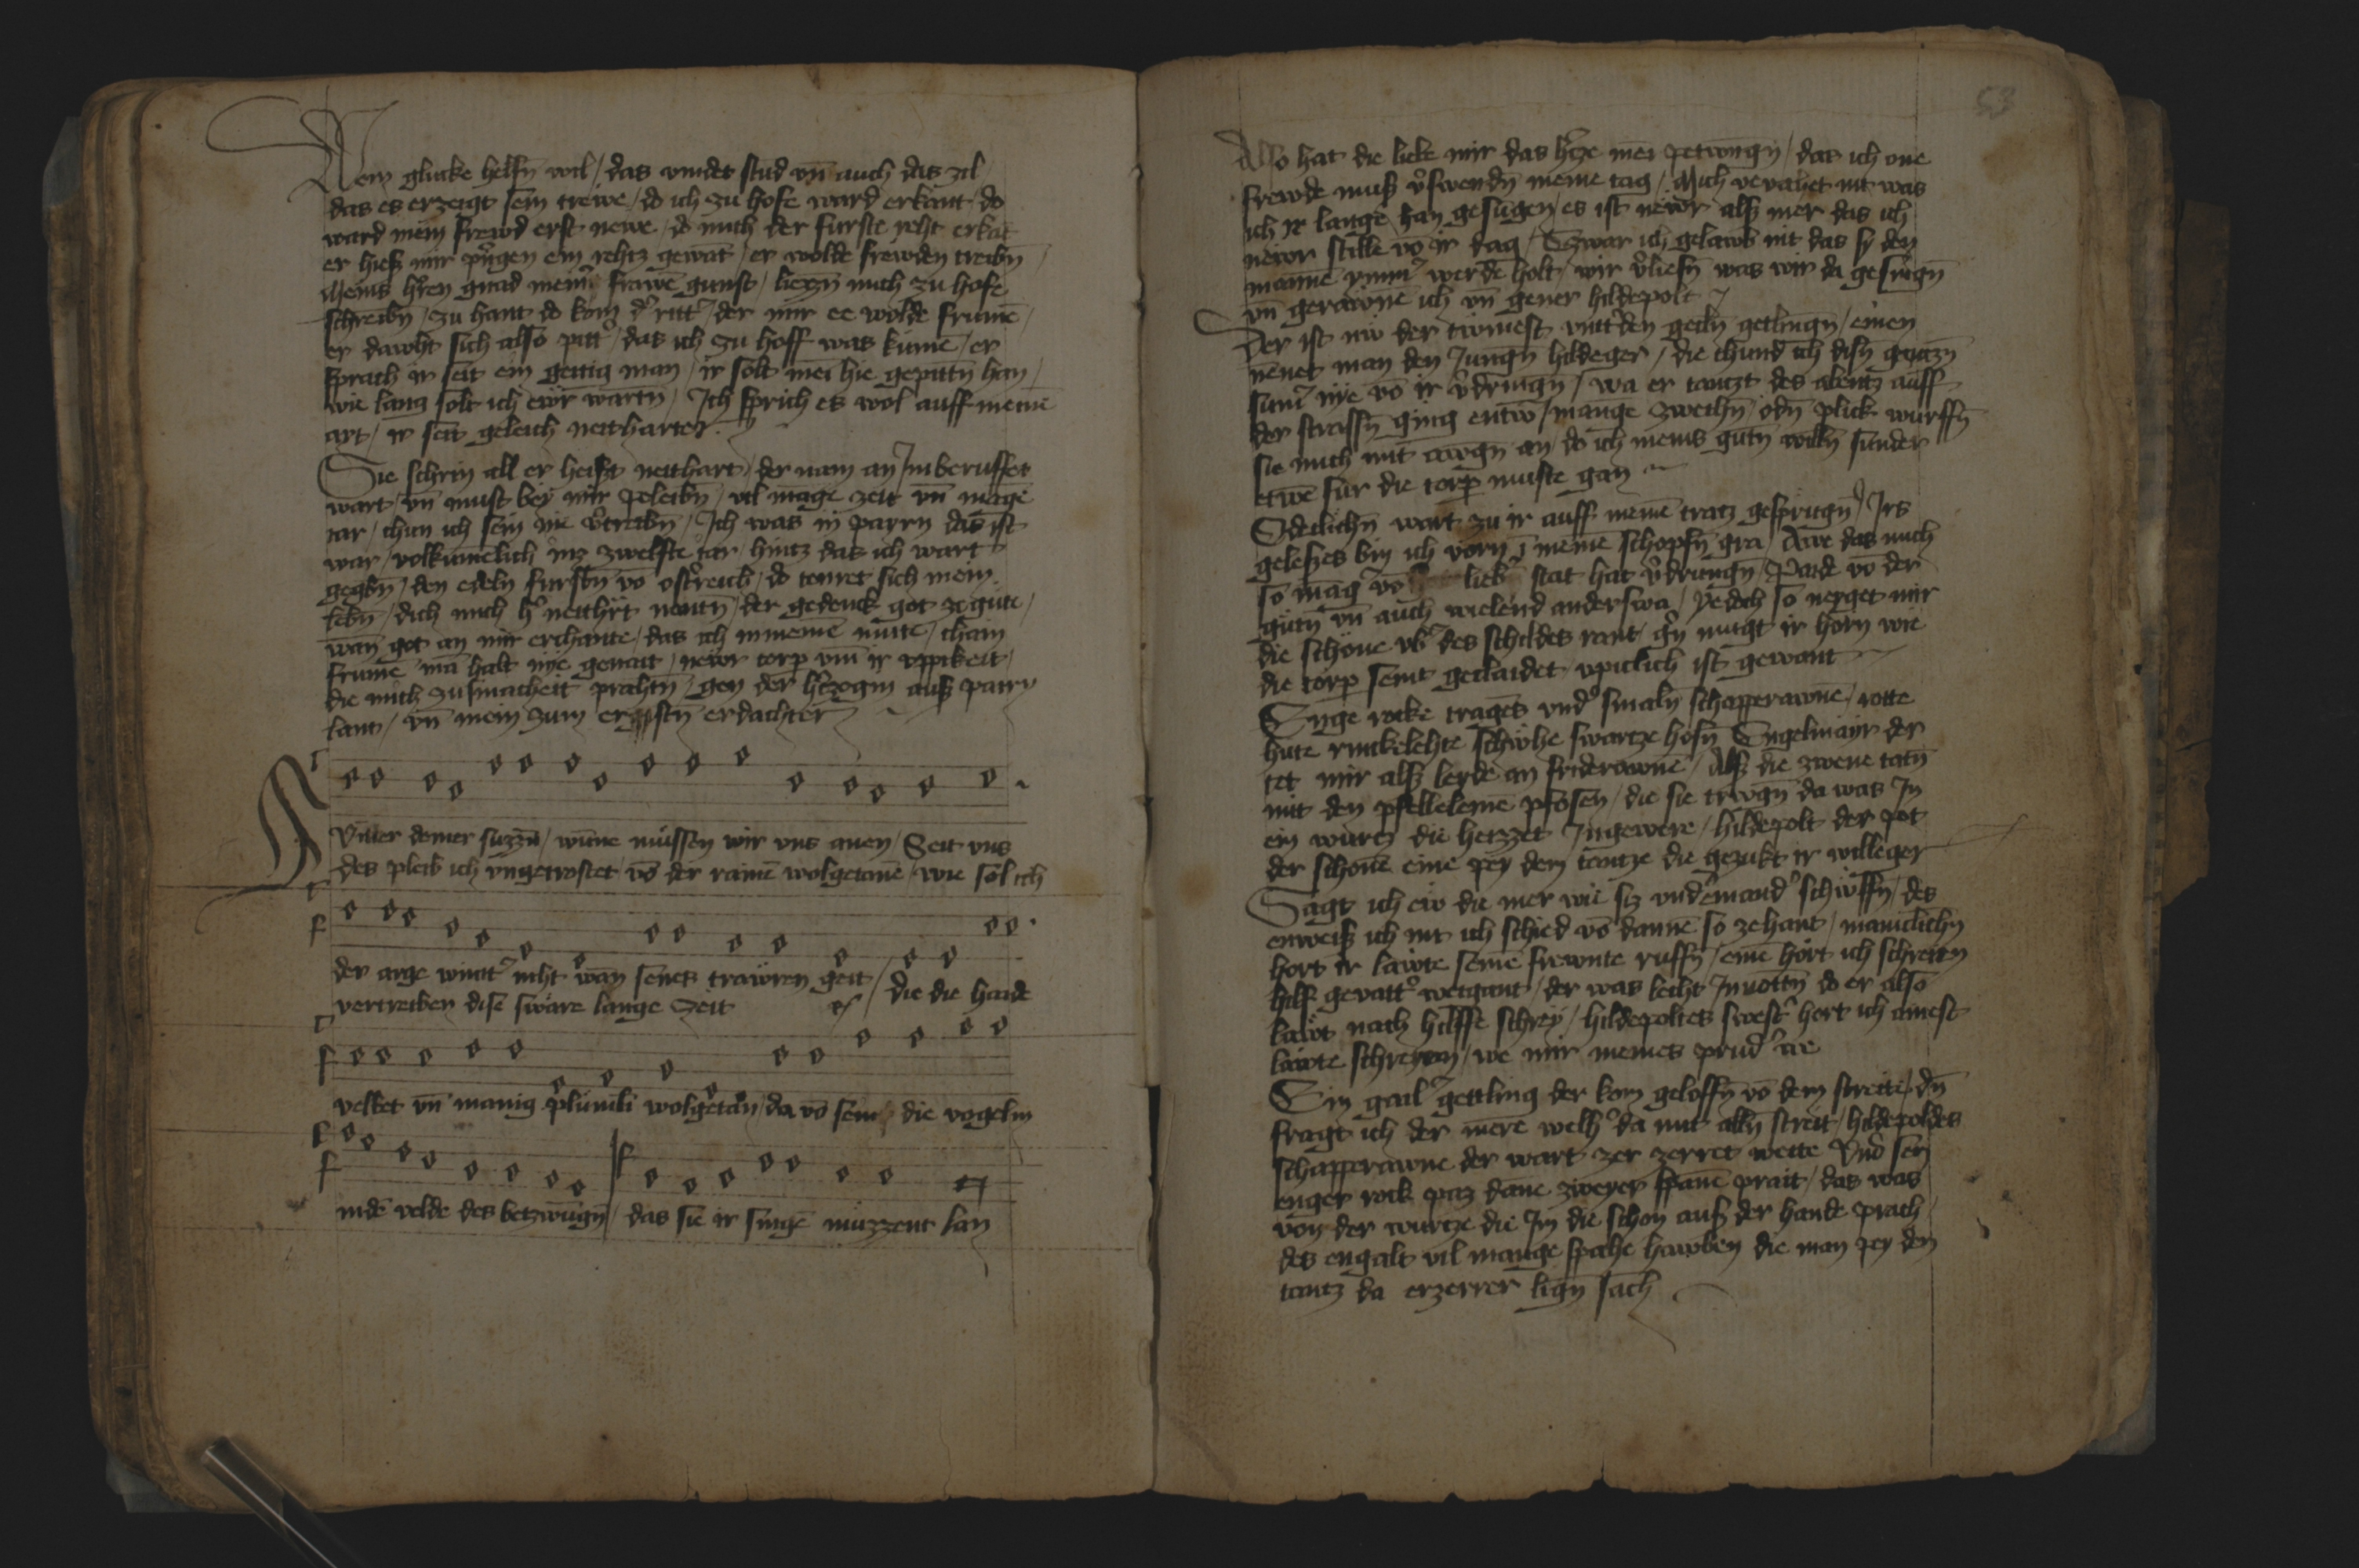 Wem glucke helfn̄ wil / das vindet stūd vn̄ auch das zil /
das es erzeigt sein treẅe / do ich zu hofe ward erkant / do
ward mein frewd erst newe / do mich der furste reht erkāt
er hiesz mir pringen ein rehtz gewāt / er wolde frewden treibn̄
Meins hr̄en gnad meinr̄ frawē gunst / liezzn̄ mich zu hofe
schreibn̄ / zu hant do kom dʼ rittʼ / der mir ee wolde frumē /
er dawht sich also pittʼ / das ich zu hoff was kumē / er
sprach ir seit ein geitig man / ir solt mei hie gepittn̄ han /
wie lang solt ich ewr wartn̄ / Ich sprich es wol auff meine
art / ir seit geleich neithartē
Sie schrin all er heiszt neithart / der nam an Im beruffet
wart / vn̄ must bey mir peleibn̄ / vil māge zeit vn̄ māge
iar / chan ich sein nie vʼtreibn̄ / Ich was in payrn das ist
war / volkumelich inz zwelfte iar / hintz das ich wart
gegebn̄ / den edeln fursten vō ostʼreich / do tewret sich mein
lebn̄ / dich mich hʼ neithart nentn̄ / der gedenck got ze gute /
wan got an mir erchante / das ich in meinem mute / chain
frumē mā halt nye genait / newr torp vm̄ ir vppikeit /
die mich zu smacheit prahtn̄ / gen der hʼtzogin ausz payrn
lant / vn̄ mein zum ergistn̄ erdachten
Winter deiner suzzn̄ / wune müssen wir vns anen / Seit vns
des pleib ich vngetrostet vō der rainē wolgetanē / wie sol ich
der arge wintʼ niht wan senes trawren geit / die die haide
vertreiben dise sware lange zeit
velbet vn̄ manig plümli wolgetan / da vō sein die vogelin
in dē velde des betzwūgn̄ / das sie ir singē müzzent lan
53
Also hat die liebe mir das hʼtze mei petwongn̄ / das ich one
frewde musz vʼswendn̄ meine tag / Mich vevahet nit was
ich ir lange han gesūgen / es ist newr alsz mer das ich
newr stille vō ir dag / Czwar ich gelawb nit das sy den
mannē ymmʼ werde holt / wir vʼliesn̄ was wir da gesūgn̄
vn̄ gerawnē ich vn̄ gener hildepolt
Der ist nw der tümest vntʼ den geiln̄ getlingn̄ / einen
nenet man den Jungn̄ hildeger / die chund ich disn̄ gantzn̄
sumʼ nye vō ir vʼdringn̄ / wa er tantzt des abentz auff
der strassn̄ ging entwʼ / mange zweihn̄ / ödn̄ plick wurffn̄
sie mich mit awgn̄ an / do ich meins gutn̄ willn̄ sunder
etwē fur die torp muste gan
Ödelichn̄ wart zu ir auff meinē tratz gesprūgn̄ / Irs
geleszes bin ich vorn ī meinē schopfn̄ gra / Awe das mich
so māgʼ vō liebʼ stat hat vʼdrungn̄ / Paide vō der
gutn̄ vn̄ auch wielend anderswa / Yedoch so neyget mir
die schöne vbʼ des schildes rant / gn̄ nutgt ir horn wie
die torp semt geclaidet / vpiclich ist gewant
Enge rocke tragēs vndʼ smaln̄ schapperawnē / rotte
hute rinckelehte schühe swartze hosn̄ Engelmayr der
tet mir alsz leyde an friderawnē / Alsz die zwene tatn̄
mit den pfellelemē pfosen / die sie trwgn̄ da was In
ein wurtz die hetzzet Ingewere / hildepolt der pot
der schonē eine pey dem tantze die gezukt ir willeger
Sagt ich ew die mer wie sʼz vndʼ einandʼ schwffn̄ / des
enweisz ich nit ich schied vō dannē so zehant / maniclichn̄
hort ir lawte seinē frewnte ruffn̄ / einē hört ich schreien
hilf gevattʼ weigant / der was leiht In nottn̄ do er also
laẅt nach hilffe schrey / hildepoltes swestʼ hort ich ainest
lawte schreyen / we mir meines prudʼ we
Ein geil gettling der kom geloffn̄ vō dem streite / dn̄
fragt ich der mere welhʼ da mit alln̄ streit / hildepoldes
schapperawne der wart zer zerret wette Vnd sein
enger rock paz dane zweyer spanē prait / das was
von der wurtze die Im die schon ausz der hande prach
des engalt vil mange spahe hawben die man pey dn̄
tantz da erzerrer lign̄ sach